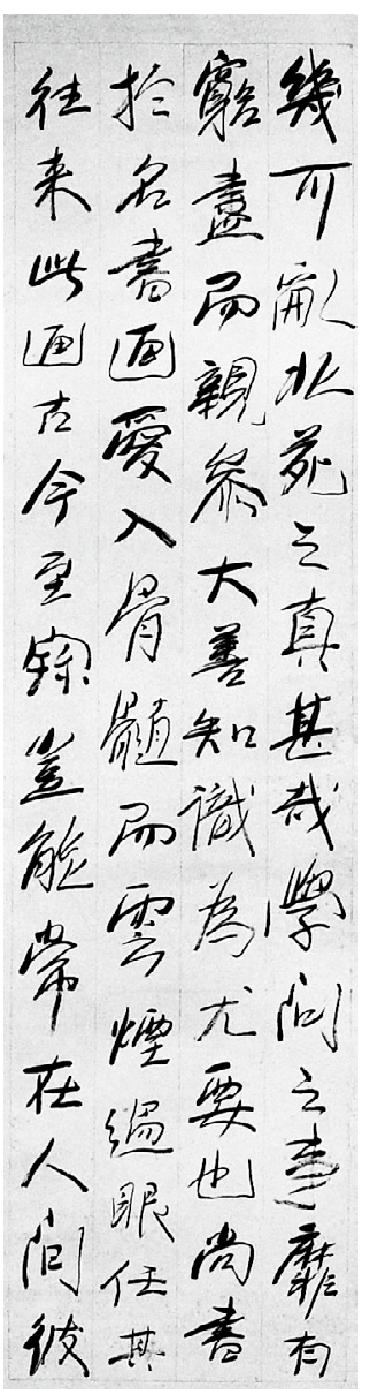 幾可亂北苑之真甚哉學問之道靡有
窮盡而親參大善知識為尤要也尚書
於名書画愛入骨髓而雲煙過眼任其
往来此画古今至寶豈能常在人間彼